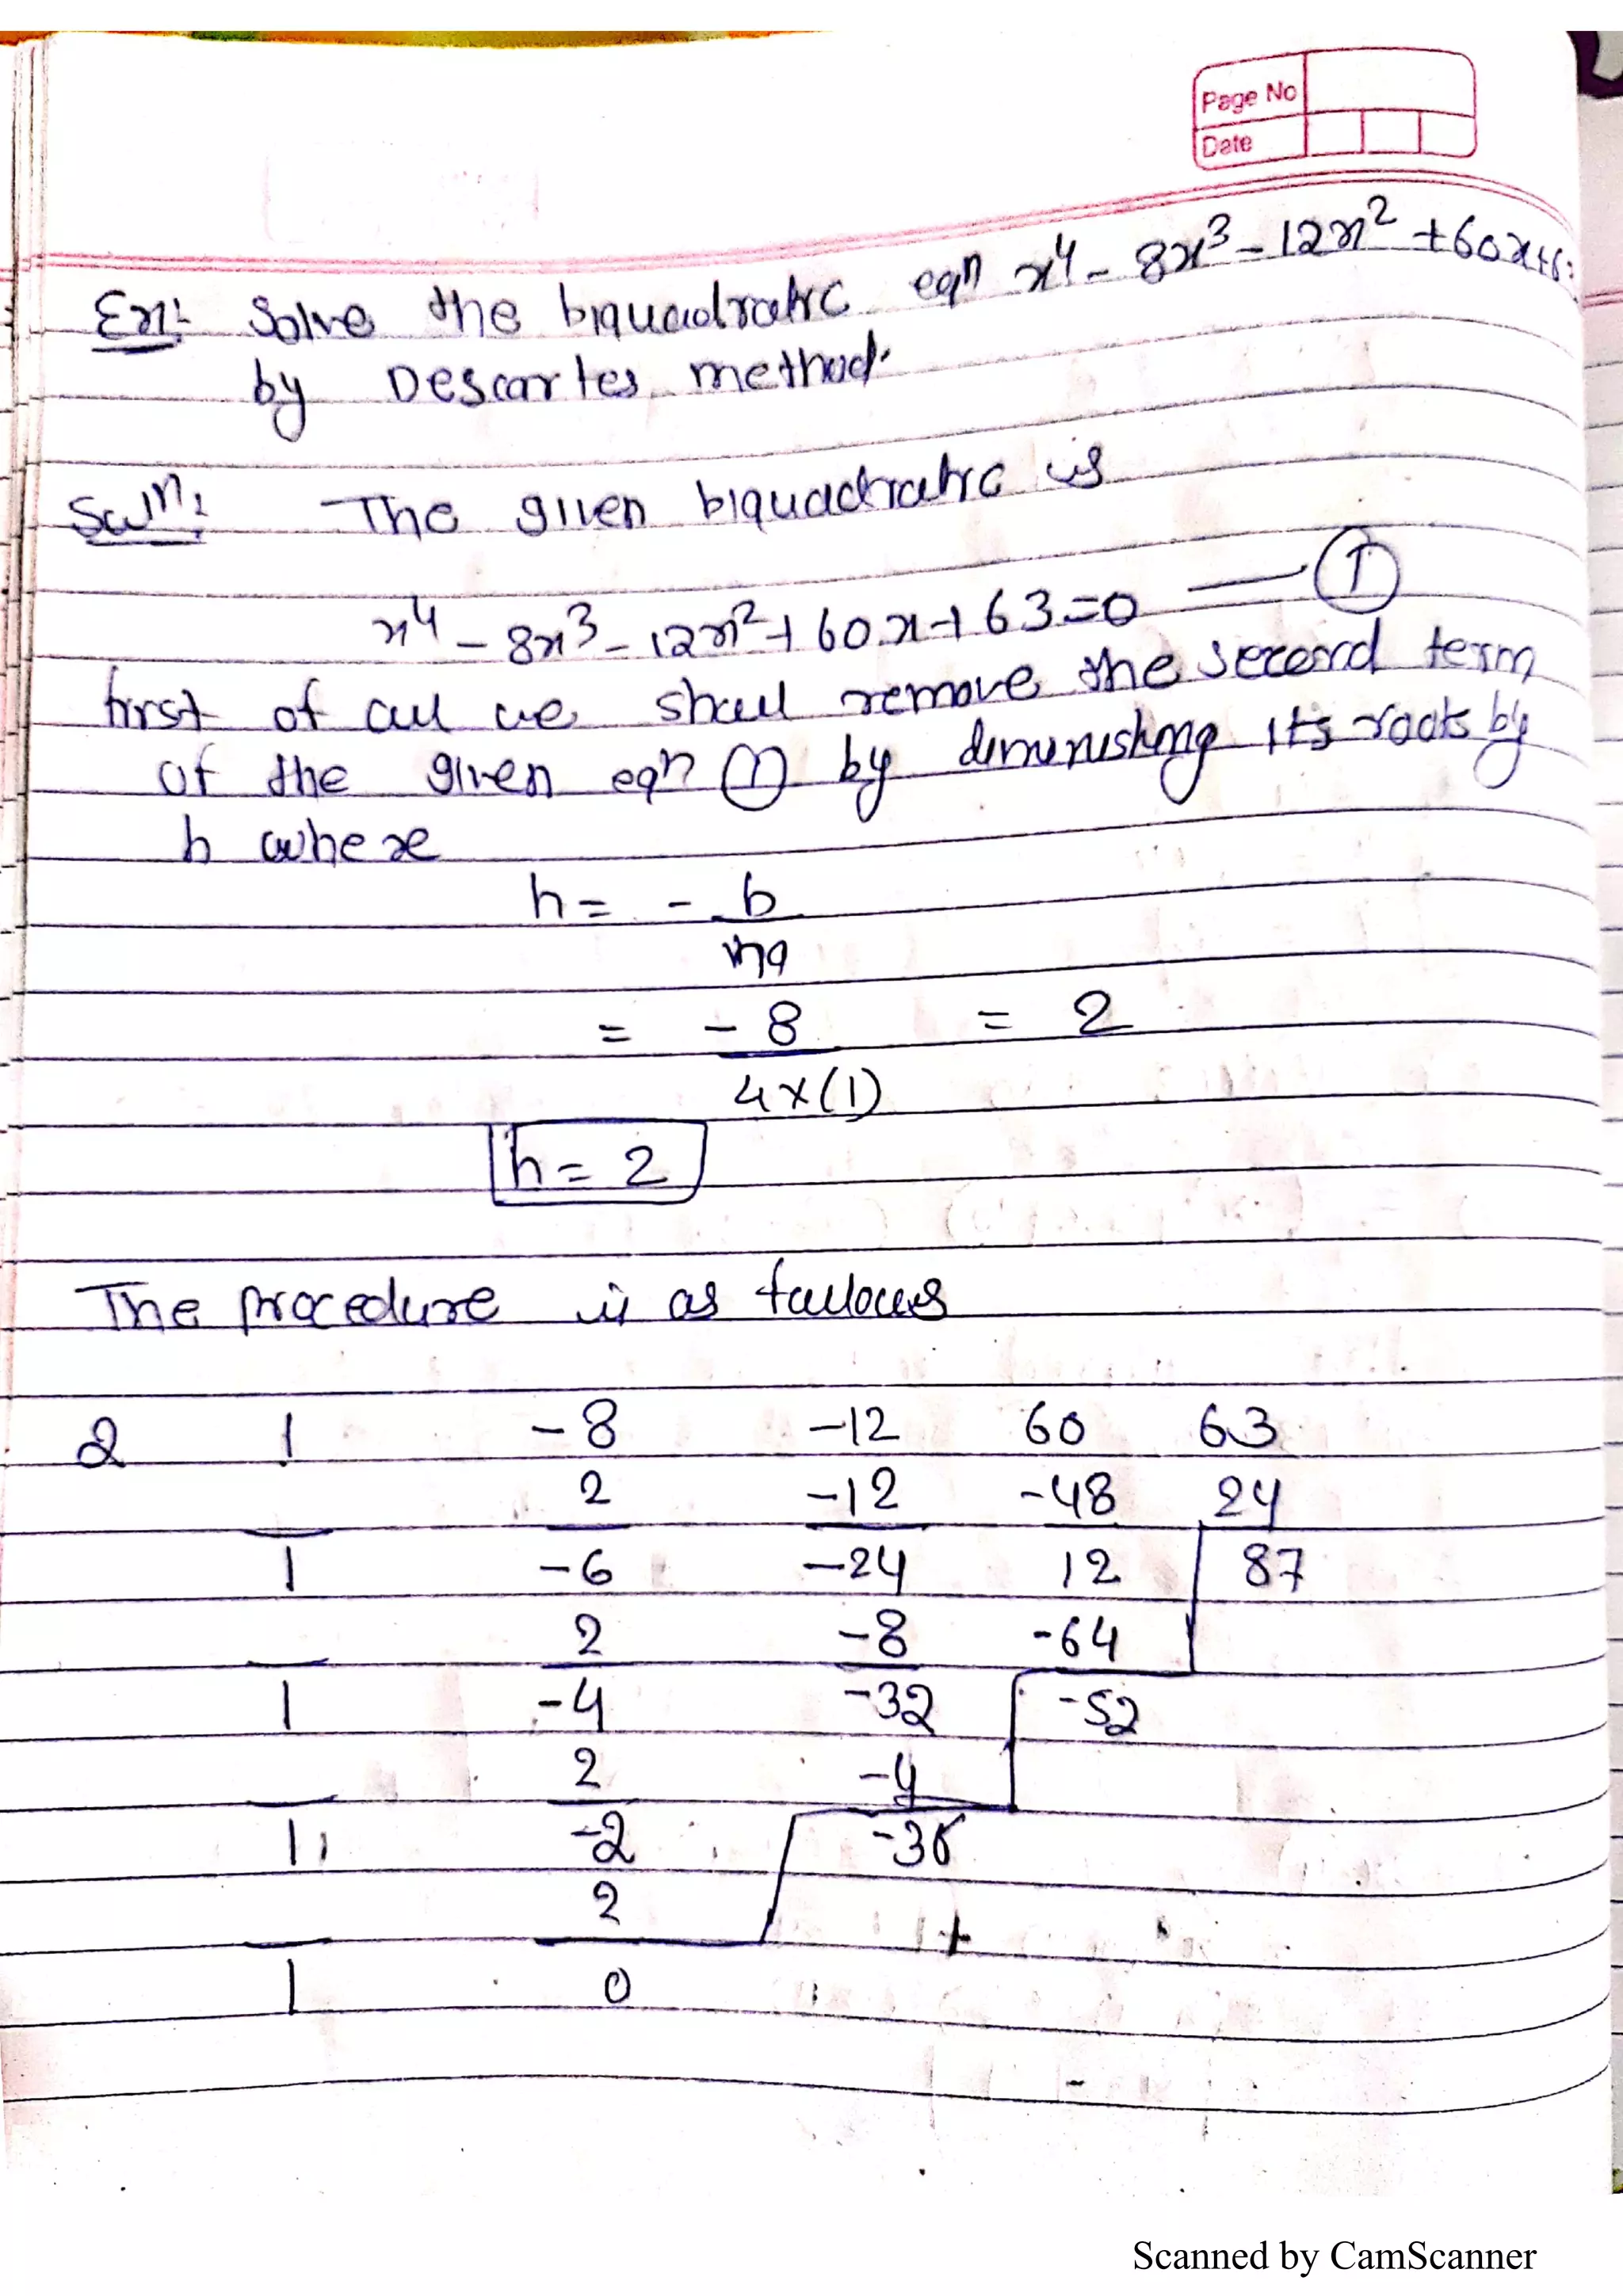 Page No
Date
Ex: Solve the biquadratic eqn x⁴ - 8x³ - 12x² + 60x + 6
by Descartes method.
Soln: The given biquadratic is
x⁴ - 8x³ - 12x² + 60x + 63 = 0 — ①
first of all we shall remove the second term
of the given eqn ① by diminishing its roots by
h where
h = - b
na
= - 8 = 2
4 x (1)
h = 2
The procedure is as follows
2 1 -8 -12 60 63
2 -12 -48 24
1 -6 -24 12 87
2 -8 -64
1 -4 -32 -52
2 -4
1 -2 -36
2
1 0
Scanned by CamScanner